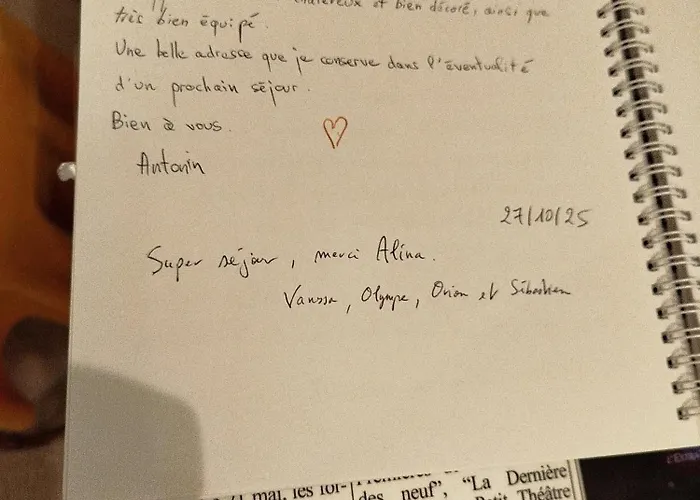 chaleureux et bien décoré, ainsi que
très bien équipé.
Une belle adresse que je conserve dans l'éventualité
d'un prochain séjour.
Bien à vous.
Antonin
27/10/25
Super séjour, merci Alina.
Vanessa, Olympe, Orion et Sébastien
mai, les for-
des neuf", "La Dernière
Petit Théâtre